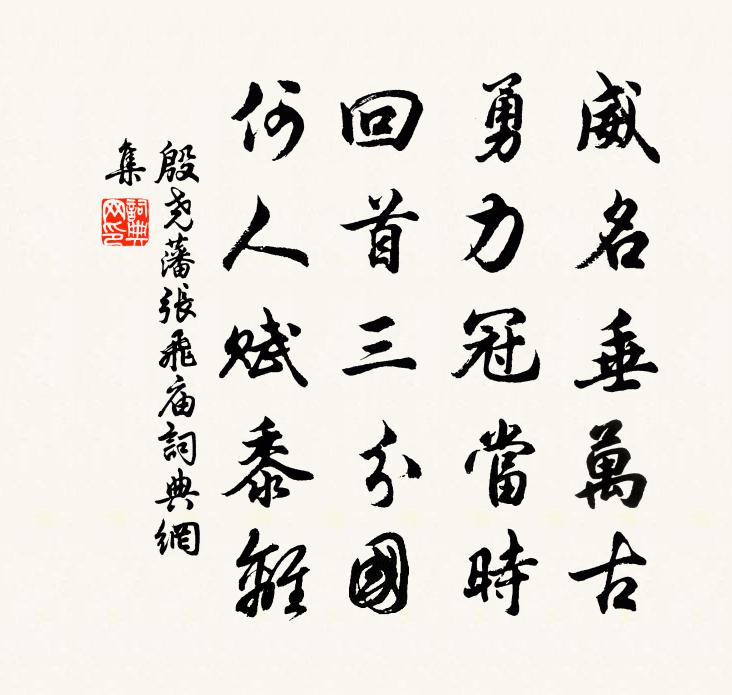 威名垂萬古
勇力冠當時
回首三分國
何人賦黍離
殷尧藩張飛庙詞典網
集
詞典网印